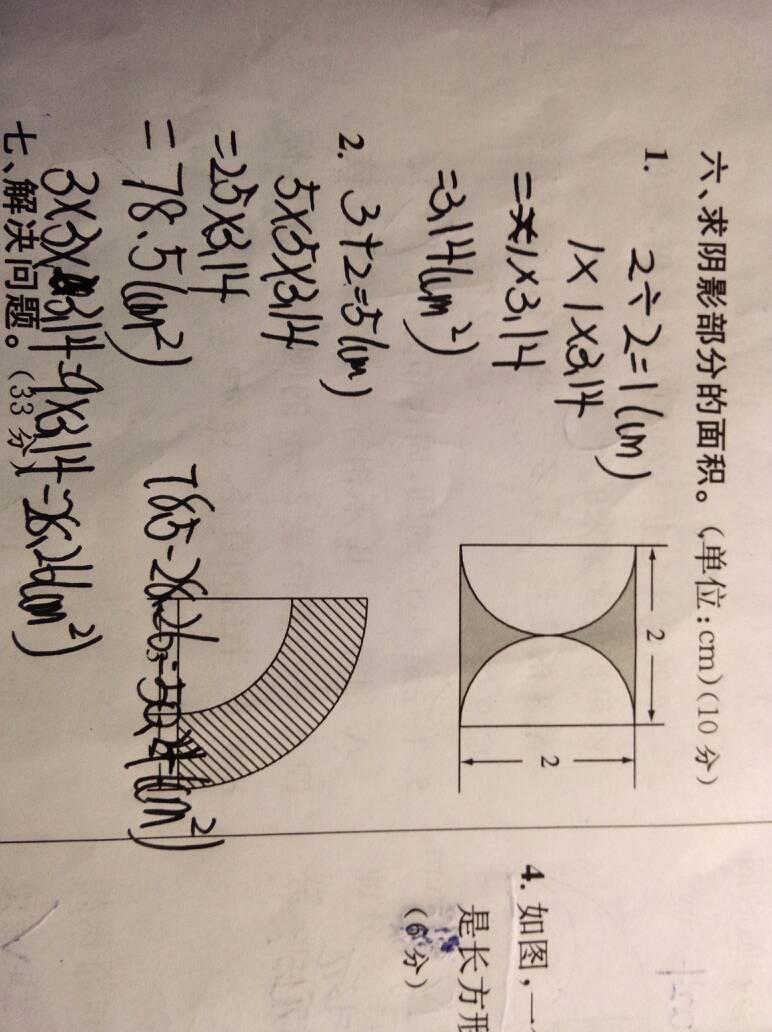 六、求阴影部分的面积。(单位:cm)(10分)
1.
2÷2=1(cm)
1×1×3.14
=1×3.14
=3.14(cm²)
2
2
2. 3+2=5(cm)
5×5×3.14
=25×3.14
=78.5(cm²)
3×3×3.14=9×3.14=28.26(cm²)
七、解决问题。(33分)
4. 如图,一
是长方形
(6分)